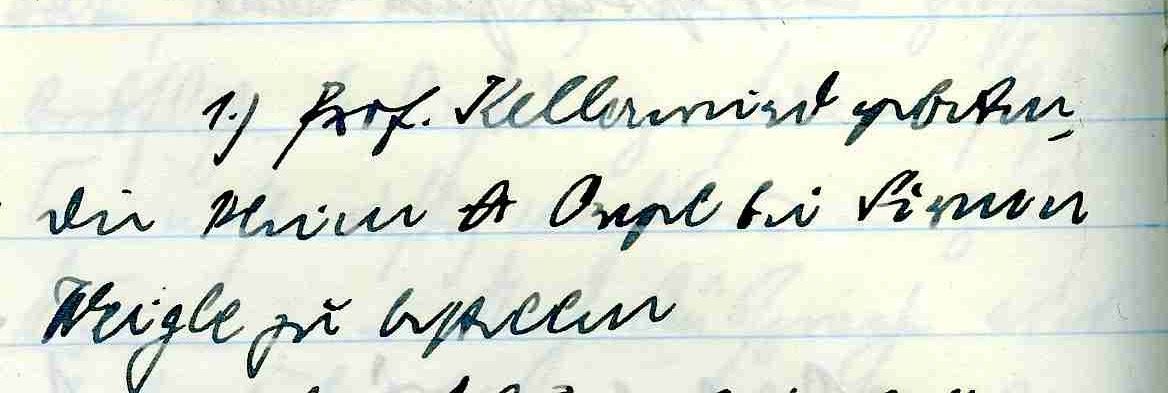 1.) Prof. Keller wird gebeten,
die kleine Orgel bei Firma
Weigle zu bestellen